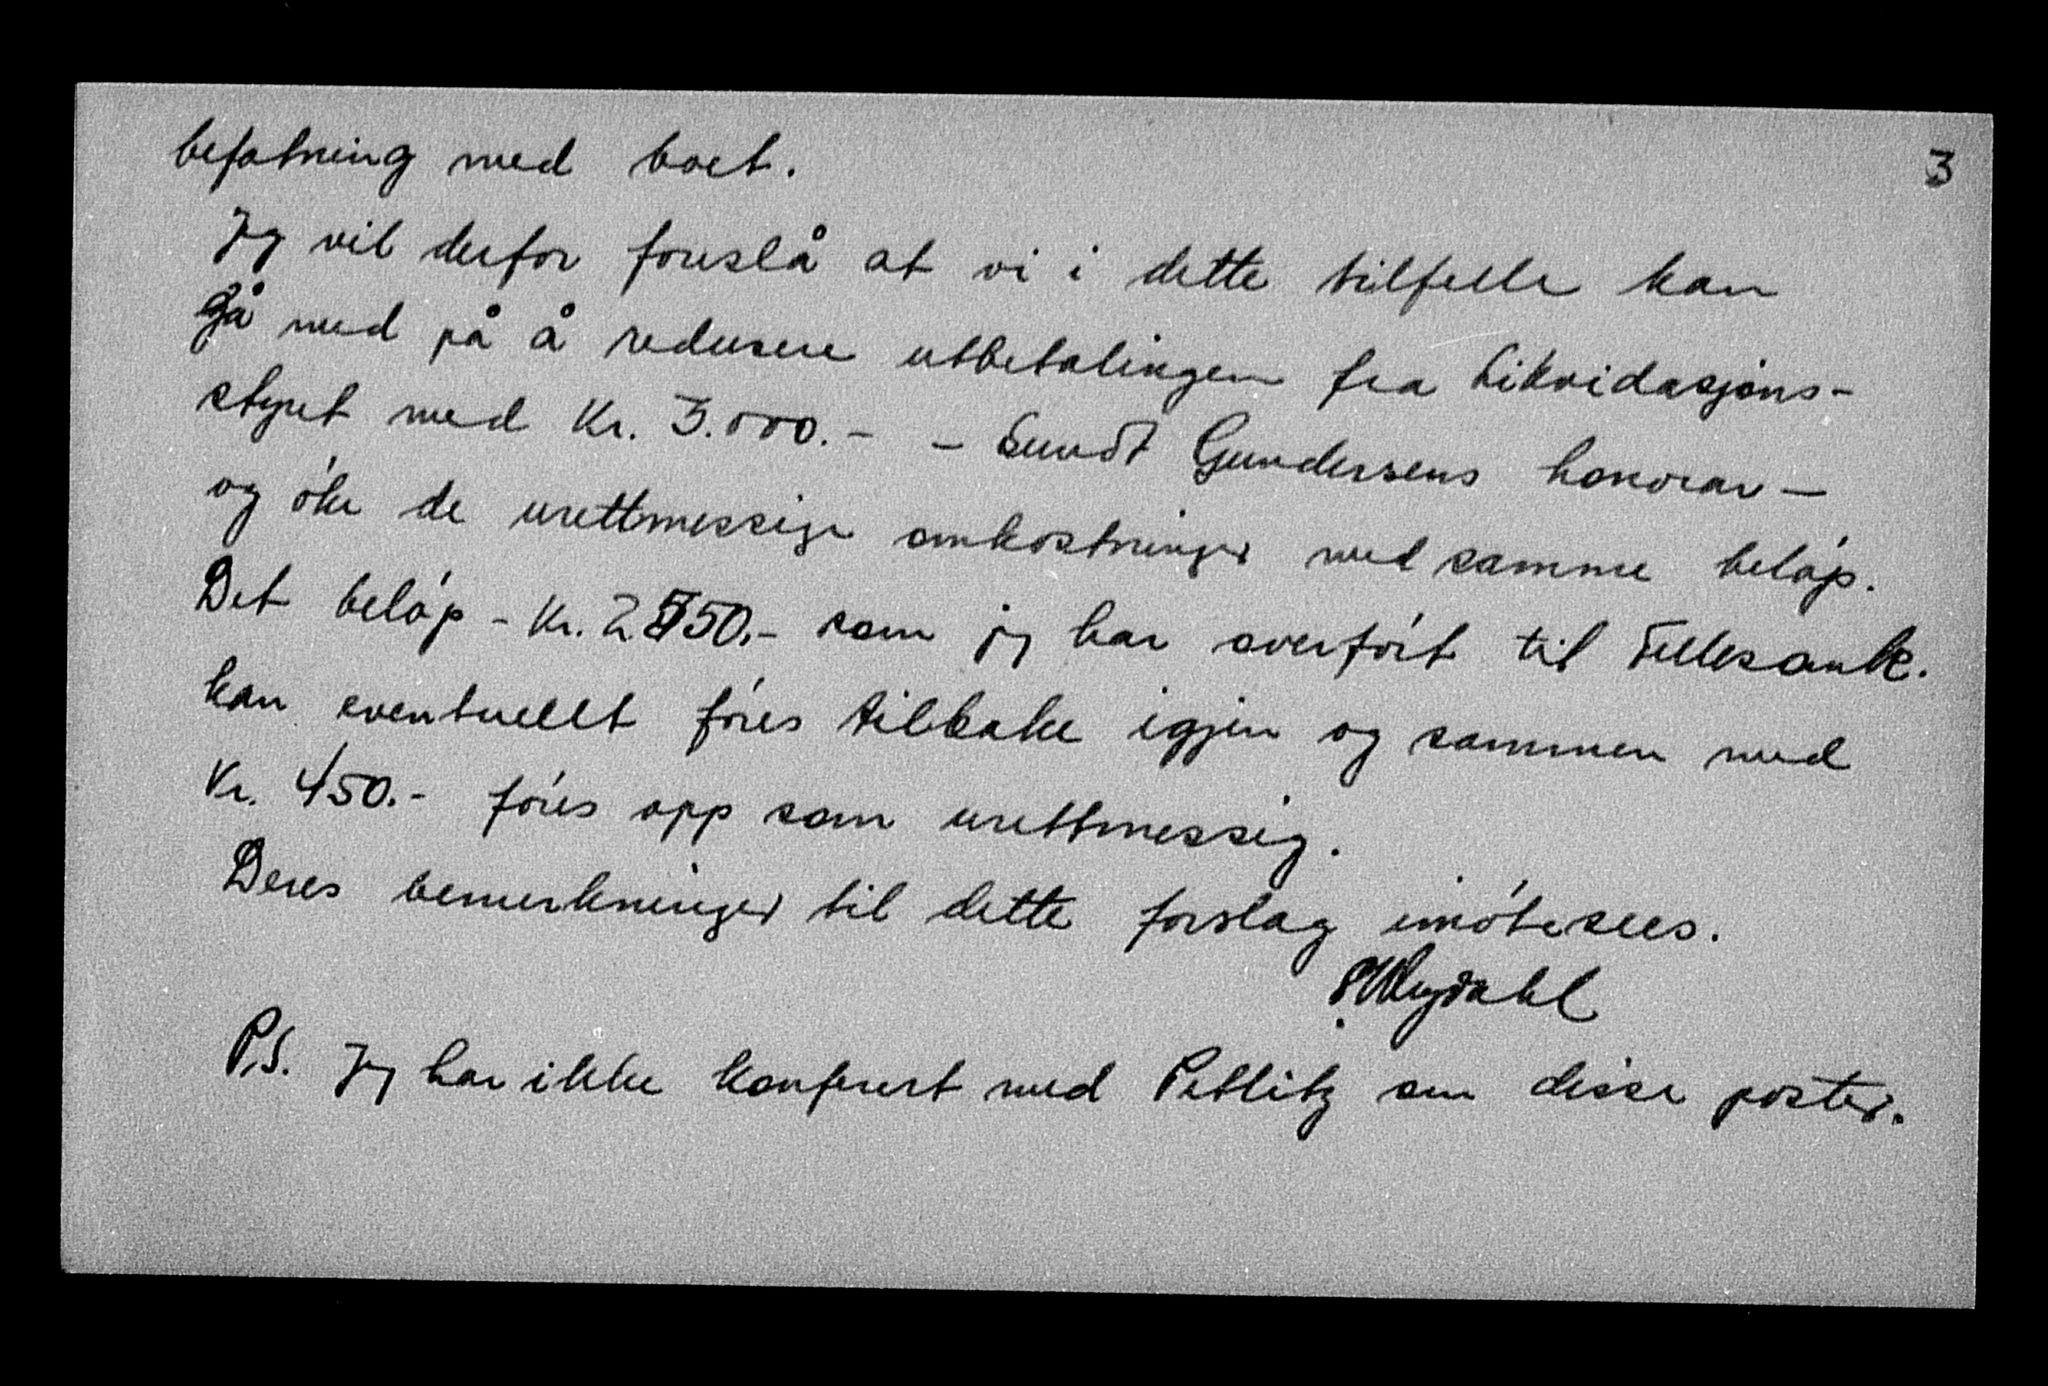 3
befatning med boet.
Jeg vil derfor foreslå at vi i dette tilfelle kan
gå med på å redusere utbetalingen fra Likvidasjons-
styret med Kr. 3.000.- - Sundt Gundersens honorar —
og óke de urettmessige omkostninger med samme belóp.
Det belóp - Kr. 2550.- som jeg har overfórt til Fellesomk.
kan eventuellt fóres tilbake igjen og sammen med
Kr. 450.- fóres opp som urettmessig.
Deres bemerkninger til dette forslag imótesees.
P.S. Jeg har ikke konferert med Petlitz om disse poster.